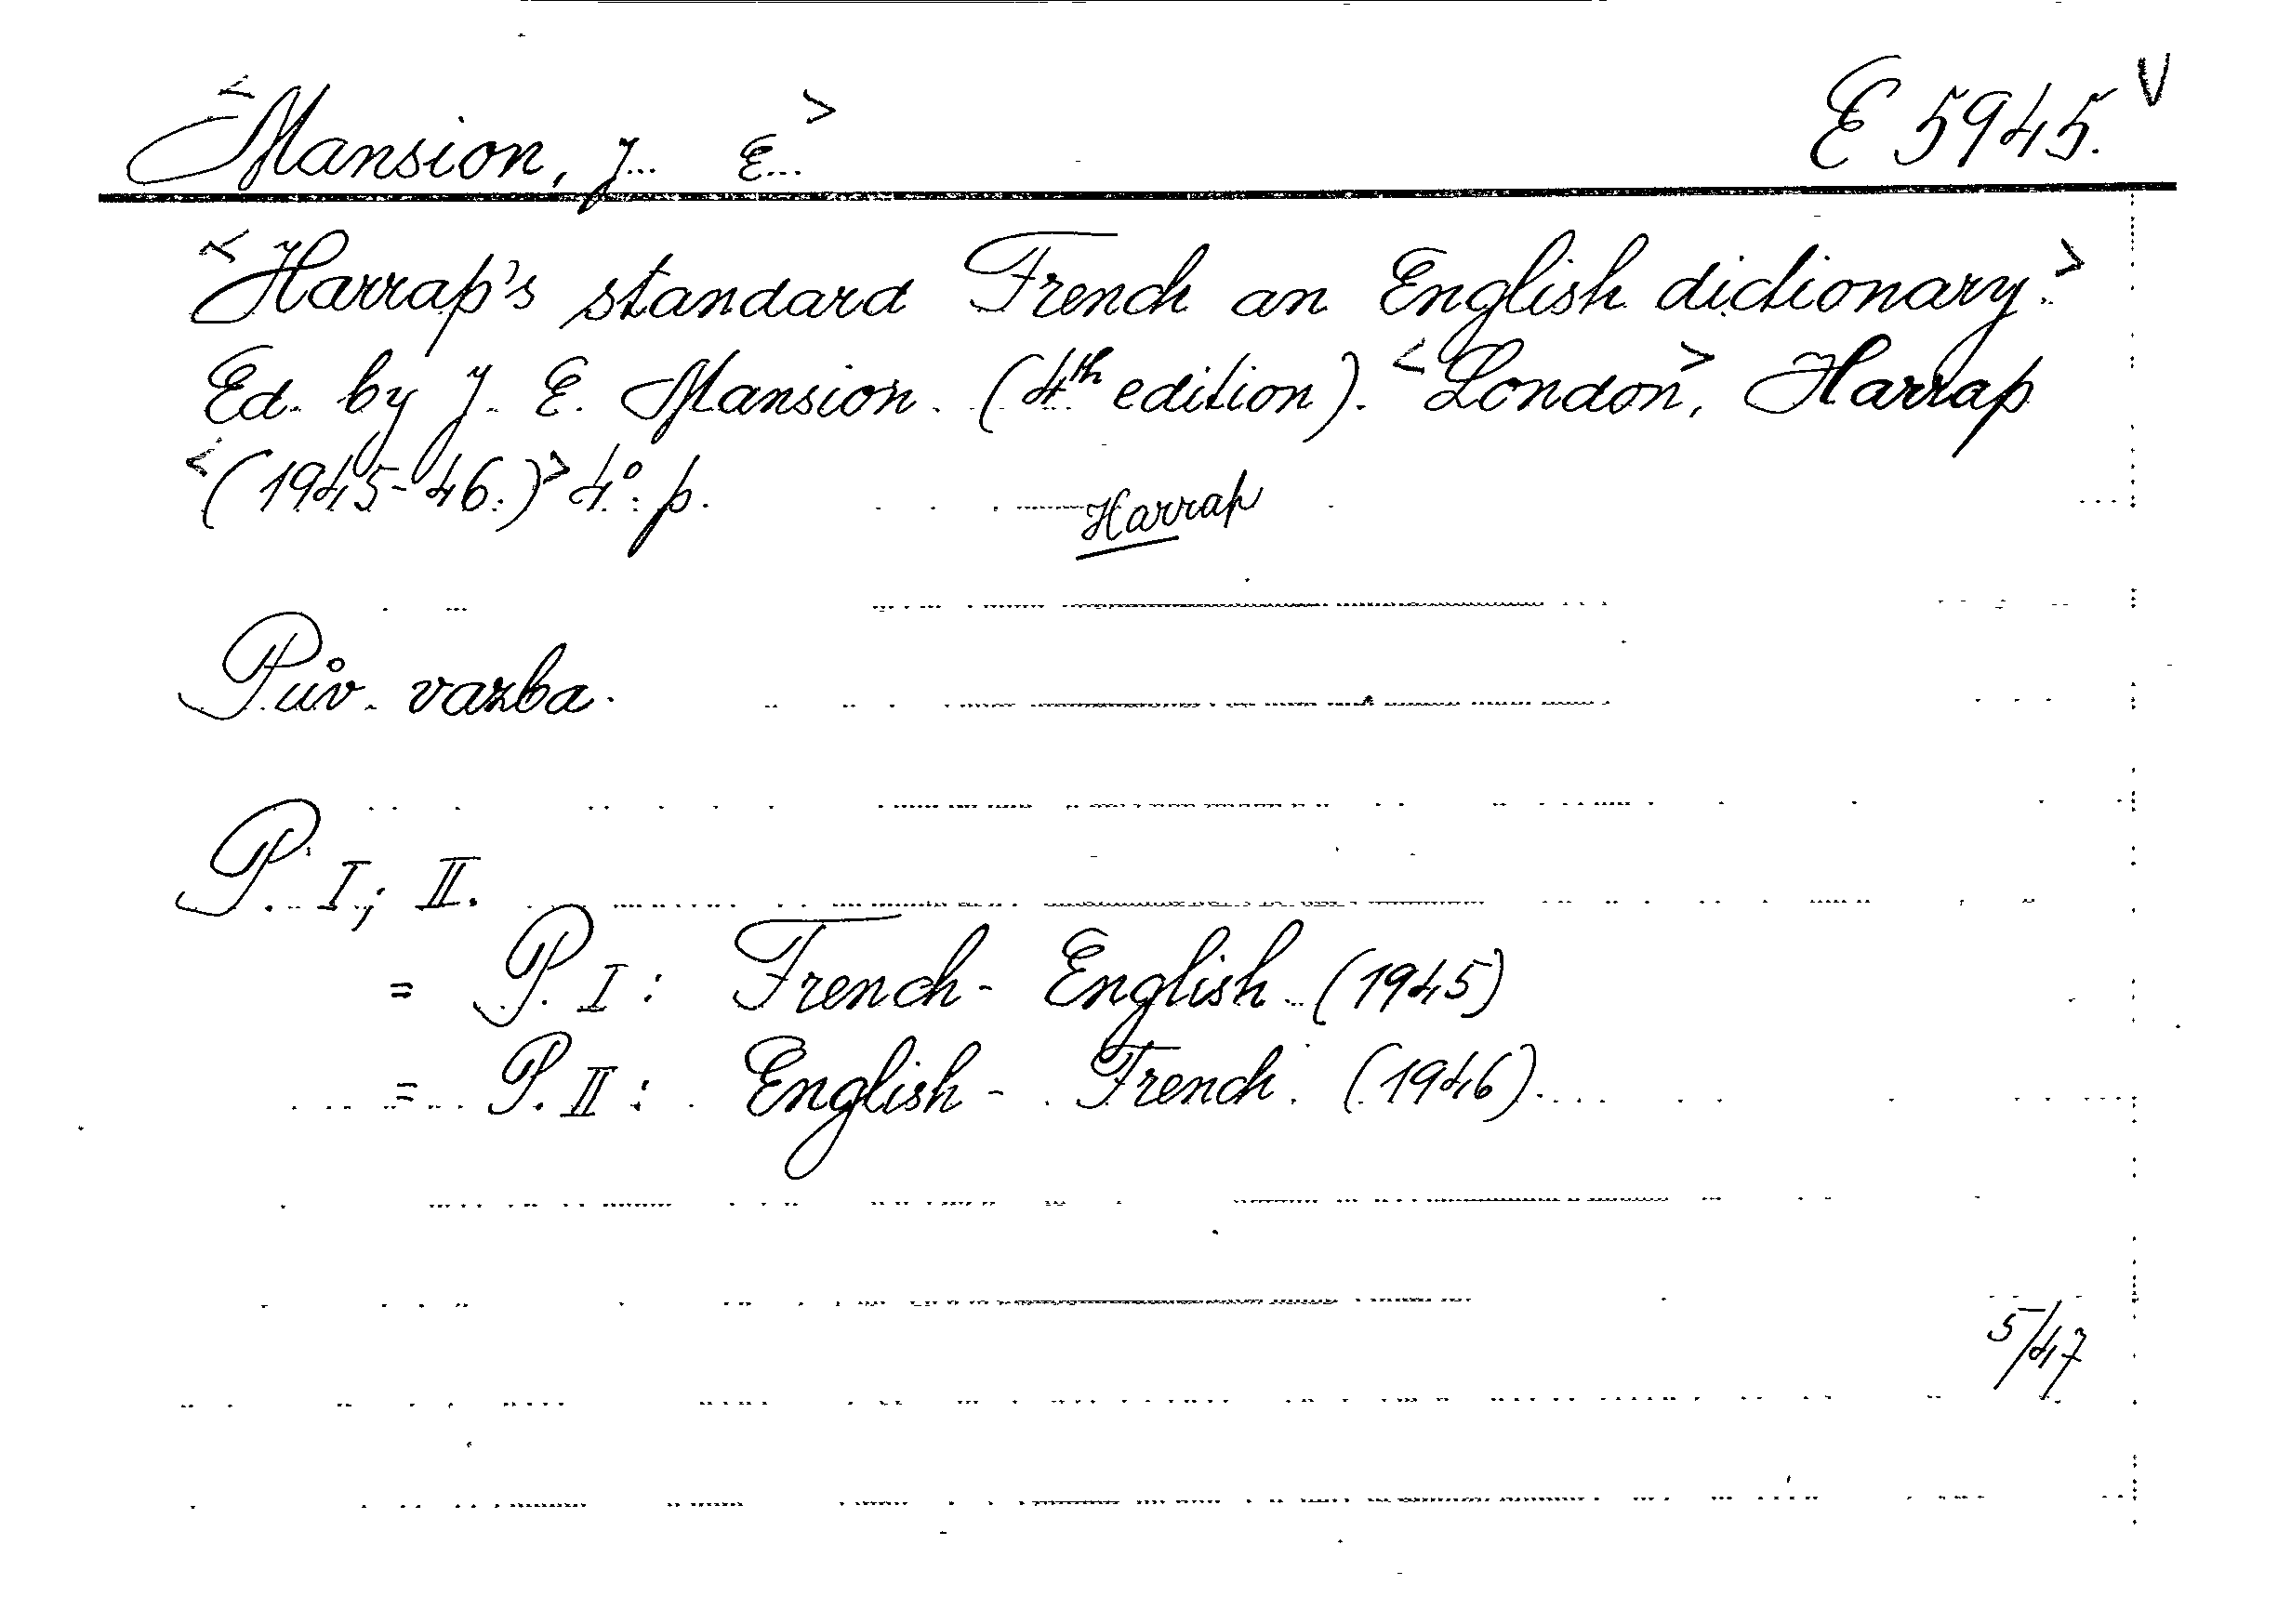 <Mansion, J... E...> E 5945. V
<Harrap's standard French an English dictionary.>
Ed. by J. E. Mansion. (4th edition). <London>, Harrap
<(1945-46.)> 4°. p.
Harrap
Pův. vazba.
P. I; II.
= P. I: French- English (1945)
= P. II: English- French. (1946).
5/47